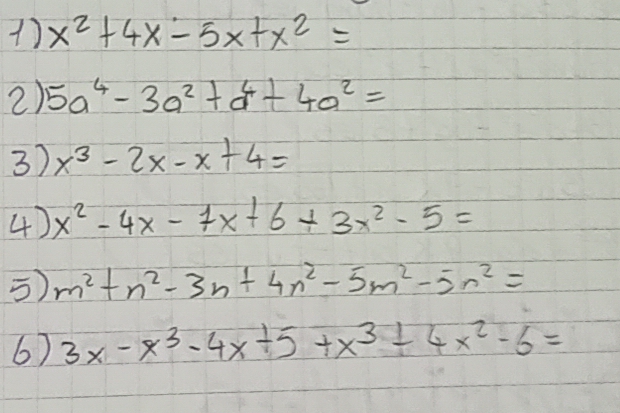 1) x² + 4x - 5x + x² =
2) 5a⁴ - 3a² + a⁴ + 4a² =
3) x³ - 2x - x + 4 =
4) x² - 4x - 7x + 6 + 3x² - 5 =
5) m² + n² - 3n + 4n² - 5m² - 5n² =
6) 3x - x³ - 4x + 5 + x³ + 4x² - 6 =